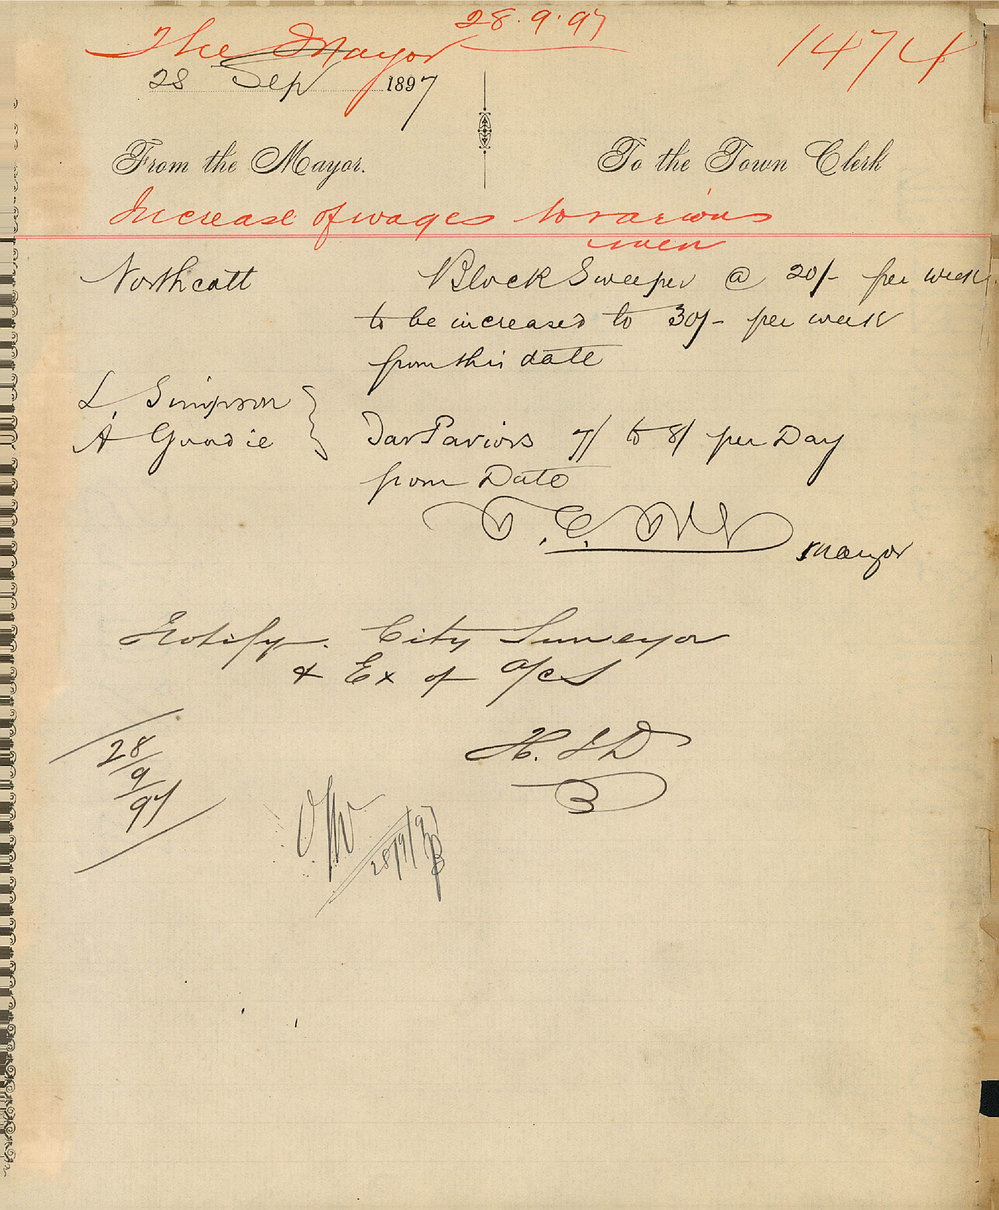 28.9.97
The Mayor 1474
28 Sep 1897
From the Mayor. To the Town Clerk
Increase of wages to various
men
Northcott Block Sweeper @ 20/- per week
to be increased to 30/- per week
from this date
L. Simpson
A Goodie } Tar Paviors 7/ to 8/ per Day
from Date
Mayor
Notify City Surveyor
& Ex of a/cs
H. S D
28/9/97
28/9/97